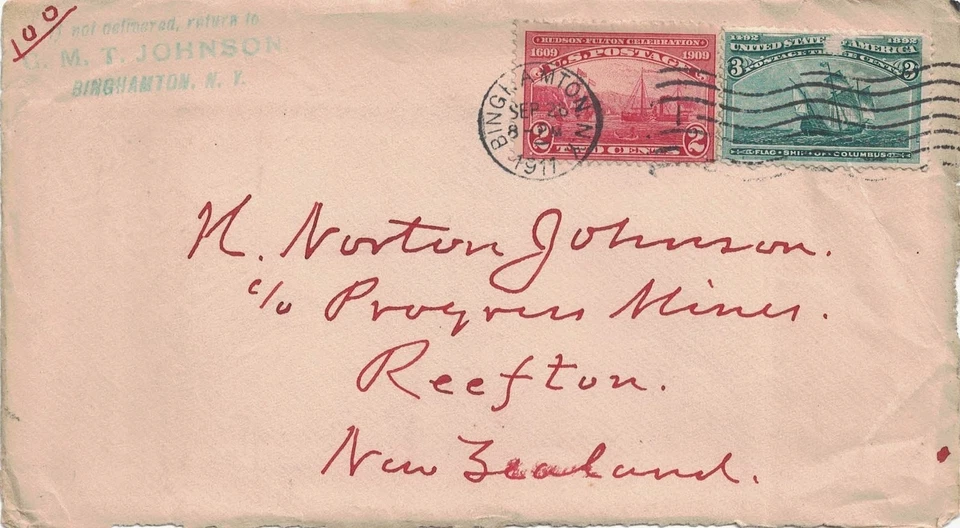 100
not delivered, return to
M. T. JOHNSON
BINGHAMTON, N. Y.
HUDSON-FULTON CELEBRATION
1609 1909
U.S. POSTAGE
2 TWO CENTS 2
1892 1892
UNITED STATES AMERICA
POSTAGE CENTS
3
FLAG-SHIP OF COLUMBUS
BINGHAMTON N.Y.
SEP 26
8-PM
1911
H. Norton Johnson.
c/o Progress Mines.
Reefton.
New Zealand.